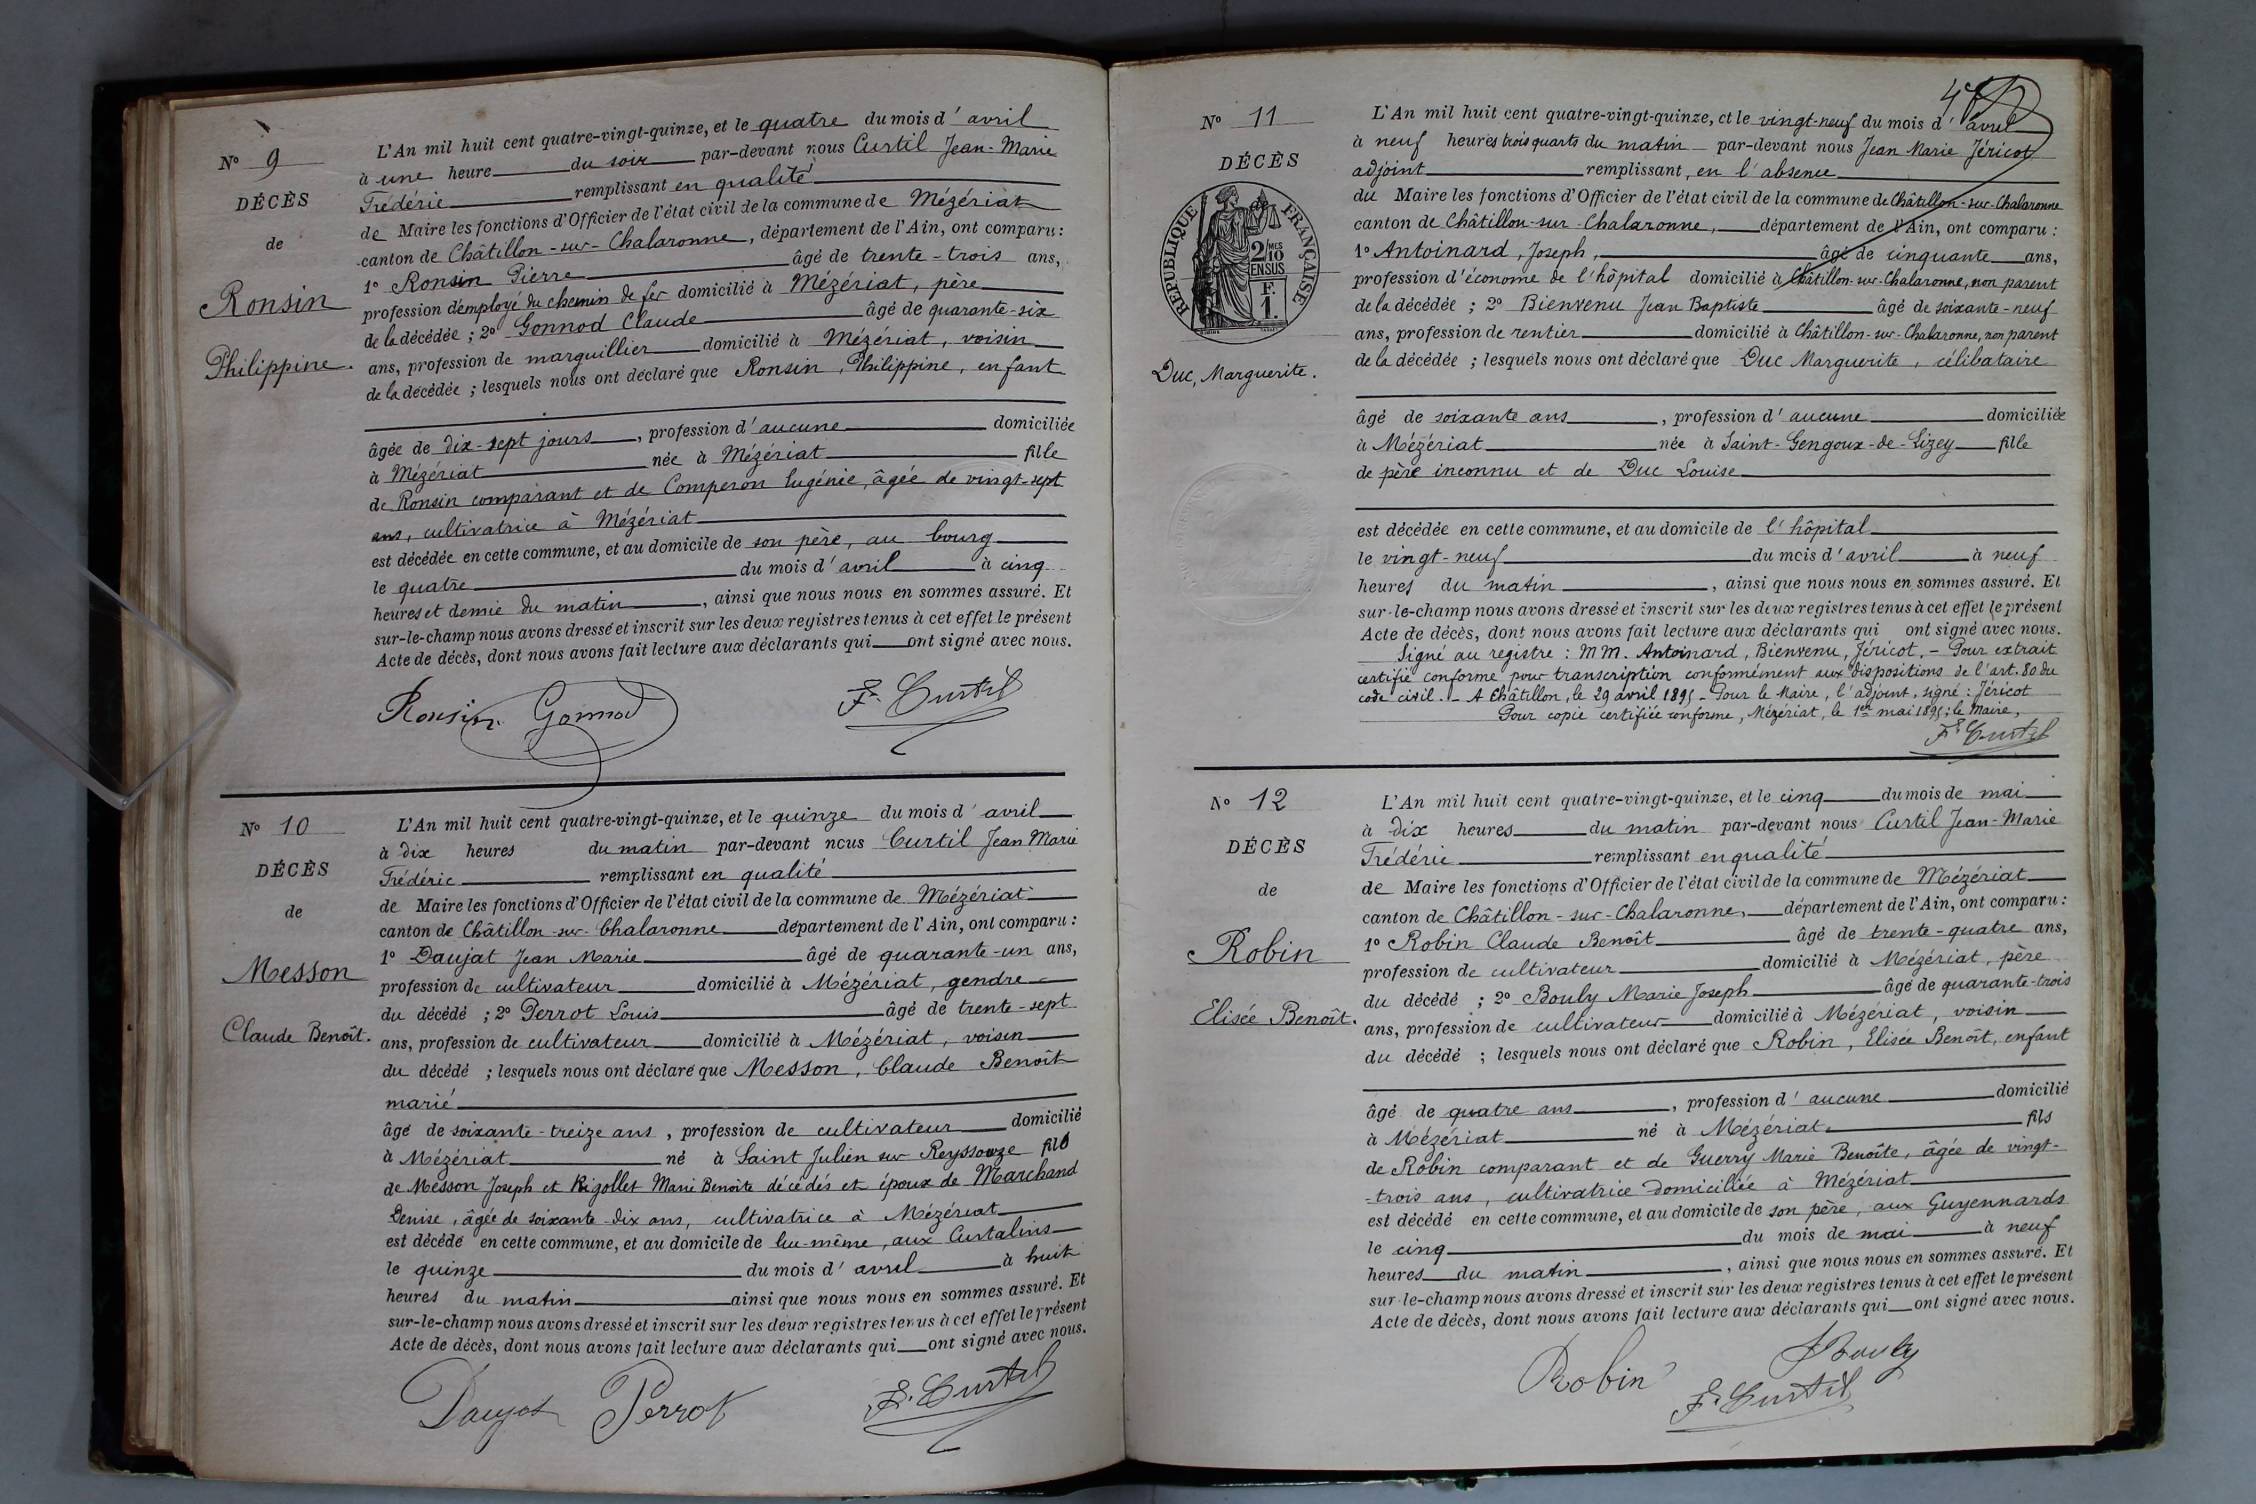 N° 9
DÉCÈS
de
Ronsin
Philippine.
L'An mil huit cent quatre-vingt-quinze, et le quatre du mois d'avril
à une heure du soir par-devant nous Curtil Jean-Marie
Frédéric remplissant en qualité
de Maire les fonctions d'Officier de l'état civil de la commune de Mézériat
canton de Châtillon-sur-Chalaronne, département de l'Ain, ont comparu :
1° Ronsin Pierre âgé de trente-trois ans,
profession d'employé du chemin de fer domicilié à Mézériat, père
de la décédée ; 2° Gonnod Claude âgé de quarante-six
ans, profession de marguillier domicilié à Mézériat, voisin
de la décédée ; lesquels nous ont déclaré que Ronsin, Philippine, enfant
âgée de dix-sept jours, profession d'aucune domiciliée
à Mézériat née à Mézériat fille
de Ronsin comparant et de Comperon Eugénie, âgée de vingt-sept
ans, cultivatrice à Mézériat
est décédée en cette commune, et au domicile de son père, au bourg
le quatre du mois d'avril à cinq
heures et demie du matin, ainsi que nous nous en sommes assuré. Et
sur-le-champ nous avons dressé et inscrit sur les deux registres tenus à cet effet le présent
Acte de décès, dont nous avons fait lecture aux déclarants qui ont signé avec nous.
Ronsin Gonnod F. Curtil
N° 10
DÉCÈS
de
Messon
Claude Benoît.
L'An mil huit cent quatre-vingt-quinze, et le quinze du mois d'avril
à dix heures du matin par-devant nous Curtil Jean Marie
Frédéric remplissant en qualité
de Maire les fonctions d'Officier de l'état civil de la commune de Mézériat
canton de Châtillon-sur-Chalaronne département de l'Ain, ont comparu :
1° Daujat Jean Marie âgé de quarante-un ans,
profession de cultivateur domicilié à Mézériat, gendre
du décédé ; 2° Perrot Louis âgé de trente-sept
ans, profession de cultivateur domicilié à Mézériat, voisin
du décédé ; lesquels nous ont déclaré que Messon, Claude Benoît
marié
âgé de soixante-treize ans, profession de cultivateur domicilié
à Mézériat né à Saint Julien sur Reyssouze fils
de Messon Joseph et Rigollet Marie Benoîte décédés et époux de Marchand
Denise, âgée de soixante-dix ans, cultivatrice à Mézériat
est décédé en cette commune, et au domicile de lui-même, aux Curtalins
le quinze du mois d'avril à huit
heures du matin ainsi que nous nous en sommes assuré. Et
sur-le-champ nous avons dressé et inscrit sur les deux registres tenus à cet effet le présent
Acte de décès, dont nous avons fait lecture aux déclarants qui ont signé avec nous.
Daujat Perrot F. Curtil
N° 11
DÉCÈS
RÉPUBLIQUE FRANÇAISE
2/10 MES
EN SUS
F.
1.
Duc, Marguerite.
L'An mil huit cent quatre-vingt-quinze, et le vingt-neuf du mois d'avril
à neuf heures trois quarts du matin par-devant nous Jean Marie Jéricot
adjoint remplissant, en l'absence
du Maire les fonctions d'Officier de l'état civil de la commune de Châtillon-sur-Chalaronne
canton de Châtillon-sur-Chalaronne, département de l'Ain, ont comparu :
1° Antoinard, Joseph, âgé de cinquante ans,
profession d'économe de l'hôpital domicilié à Châtillon-sur-Chalaronne, non parent
de la décédée ; 2° Bienvenu Jean Baptiste âgé de soixante-neuf
ans, profession de rentier domicilié à Châtillon-sur-Chalaronne, non parent
de la décédée ; lesquels nous ont déclaré que Duc Marguerite, célibataire
âgé de soixante ans, profession d'aucune domiciliée
à Mézériat née à Saint-Gengoux-de-Sizey fille
de père inconnu et de Duc Louise
est décédée en cette commune, et au domicile de l'hôpital
le vingt-neuf du mois d'avril à neuf
heures du matin, ainsi que nous nous en sommes assuré. Et
sur-le-champ nous avons dressé et inscrit sur les deux registres tenus à cet effet le présent
Acte de décès, dont nous avons fait lecture aux déclarants qui ont signé avec nous.
Signé au registre : MM. Antoinard, Bienvenu, Jéricot. - Pour extrait
certifié conforme pour transcription conformément aux dispositions de l'art. 80 du
code civil. - A Châtillon, le 29 avril 1895 - Pour le Maire, l'adjoint, signé : Jéricot
Pour copie certifiée conforme, Mézériat, le 1er mai 1895; le Maire,
F. Curtil
N° 12
DÉCÈS
de
Robin
Elisée Benoît.
L'An mil huit cent quatre-vingt-quinze, et le cinq du mois de mai
à dix heures du matin par-devant nous Curtil Jean-Marie
Frédéric remplissant en qualité
de Maire les fonctions d'Officier de l'état civil de la commune de Mézériat
canton de Châtillon-sur-Chalaronne, département de l'Ain, ont comparu :
1° Robin Claude Benoît âgé de trente-quatre ans,
profession de cultivateur domicilié à Mézériat, père
du décédé ; 2° Bouly Marie Joseph âgé de quarante-trois
ans, profession de cultivateur domicilié à Mézériat, voisin
du décédé ; lesquels nous ont déclaré que Robin, Elisée Benoît, enfant
âgé de quatre ans, profession d'aucune domicilié
à Mézériat né à Mézériat fils
de Robin comparant et de Guerry Marie Benoîte, âgée de vingt-
-trois ans, cultivatrice domiciliée à Mézériat
est décédé en cette commune, et au domicile de son père, aux Guyennards
le cinq du mois de mai à neuf
heures du matin, ainsi que nous nous en sommes assuré. Et
sur-le-champ nous avons dressé et inscrit sur les deux registres tenus à cet effet le présent
Acte de décès, dont nous avons fait lecture aux déclarants qui ont signé avec nous.
Robin Bouly
F. Curtil